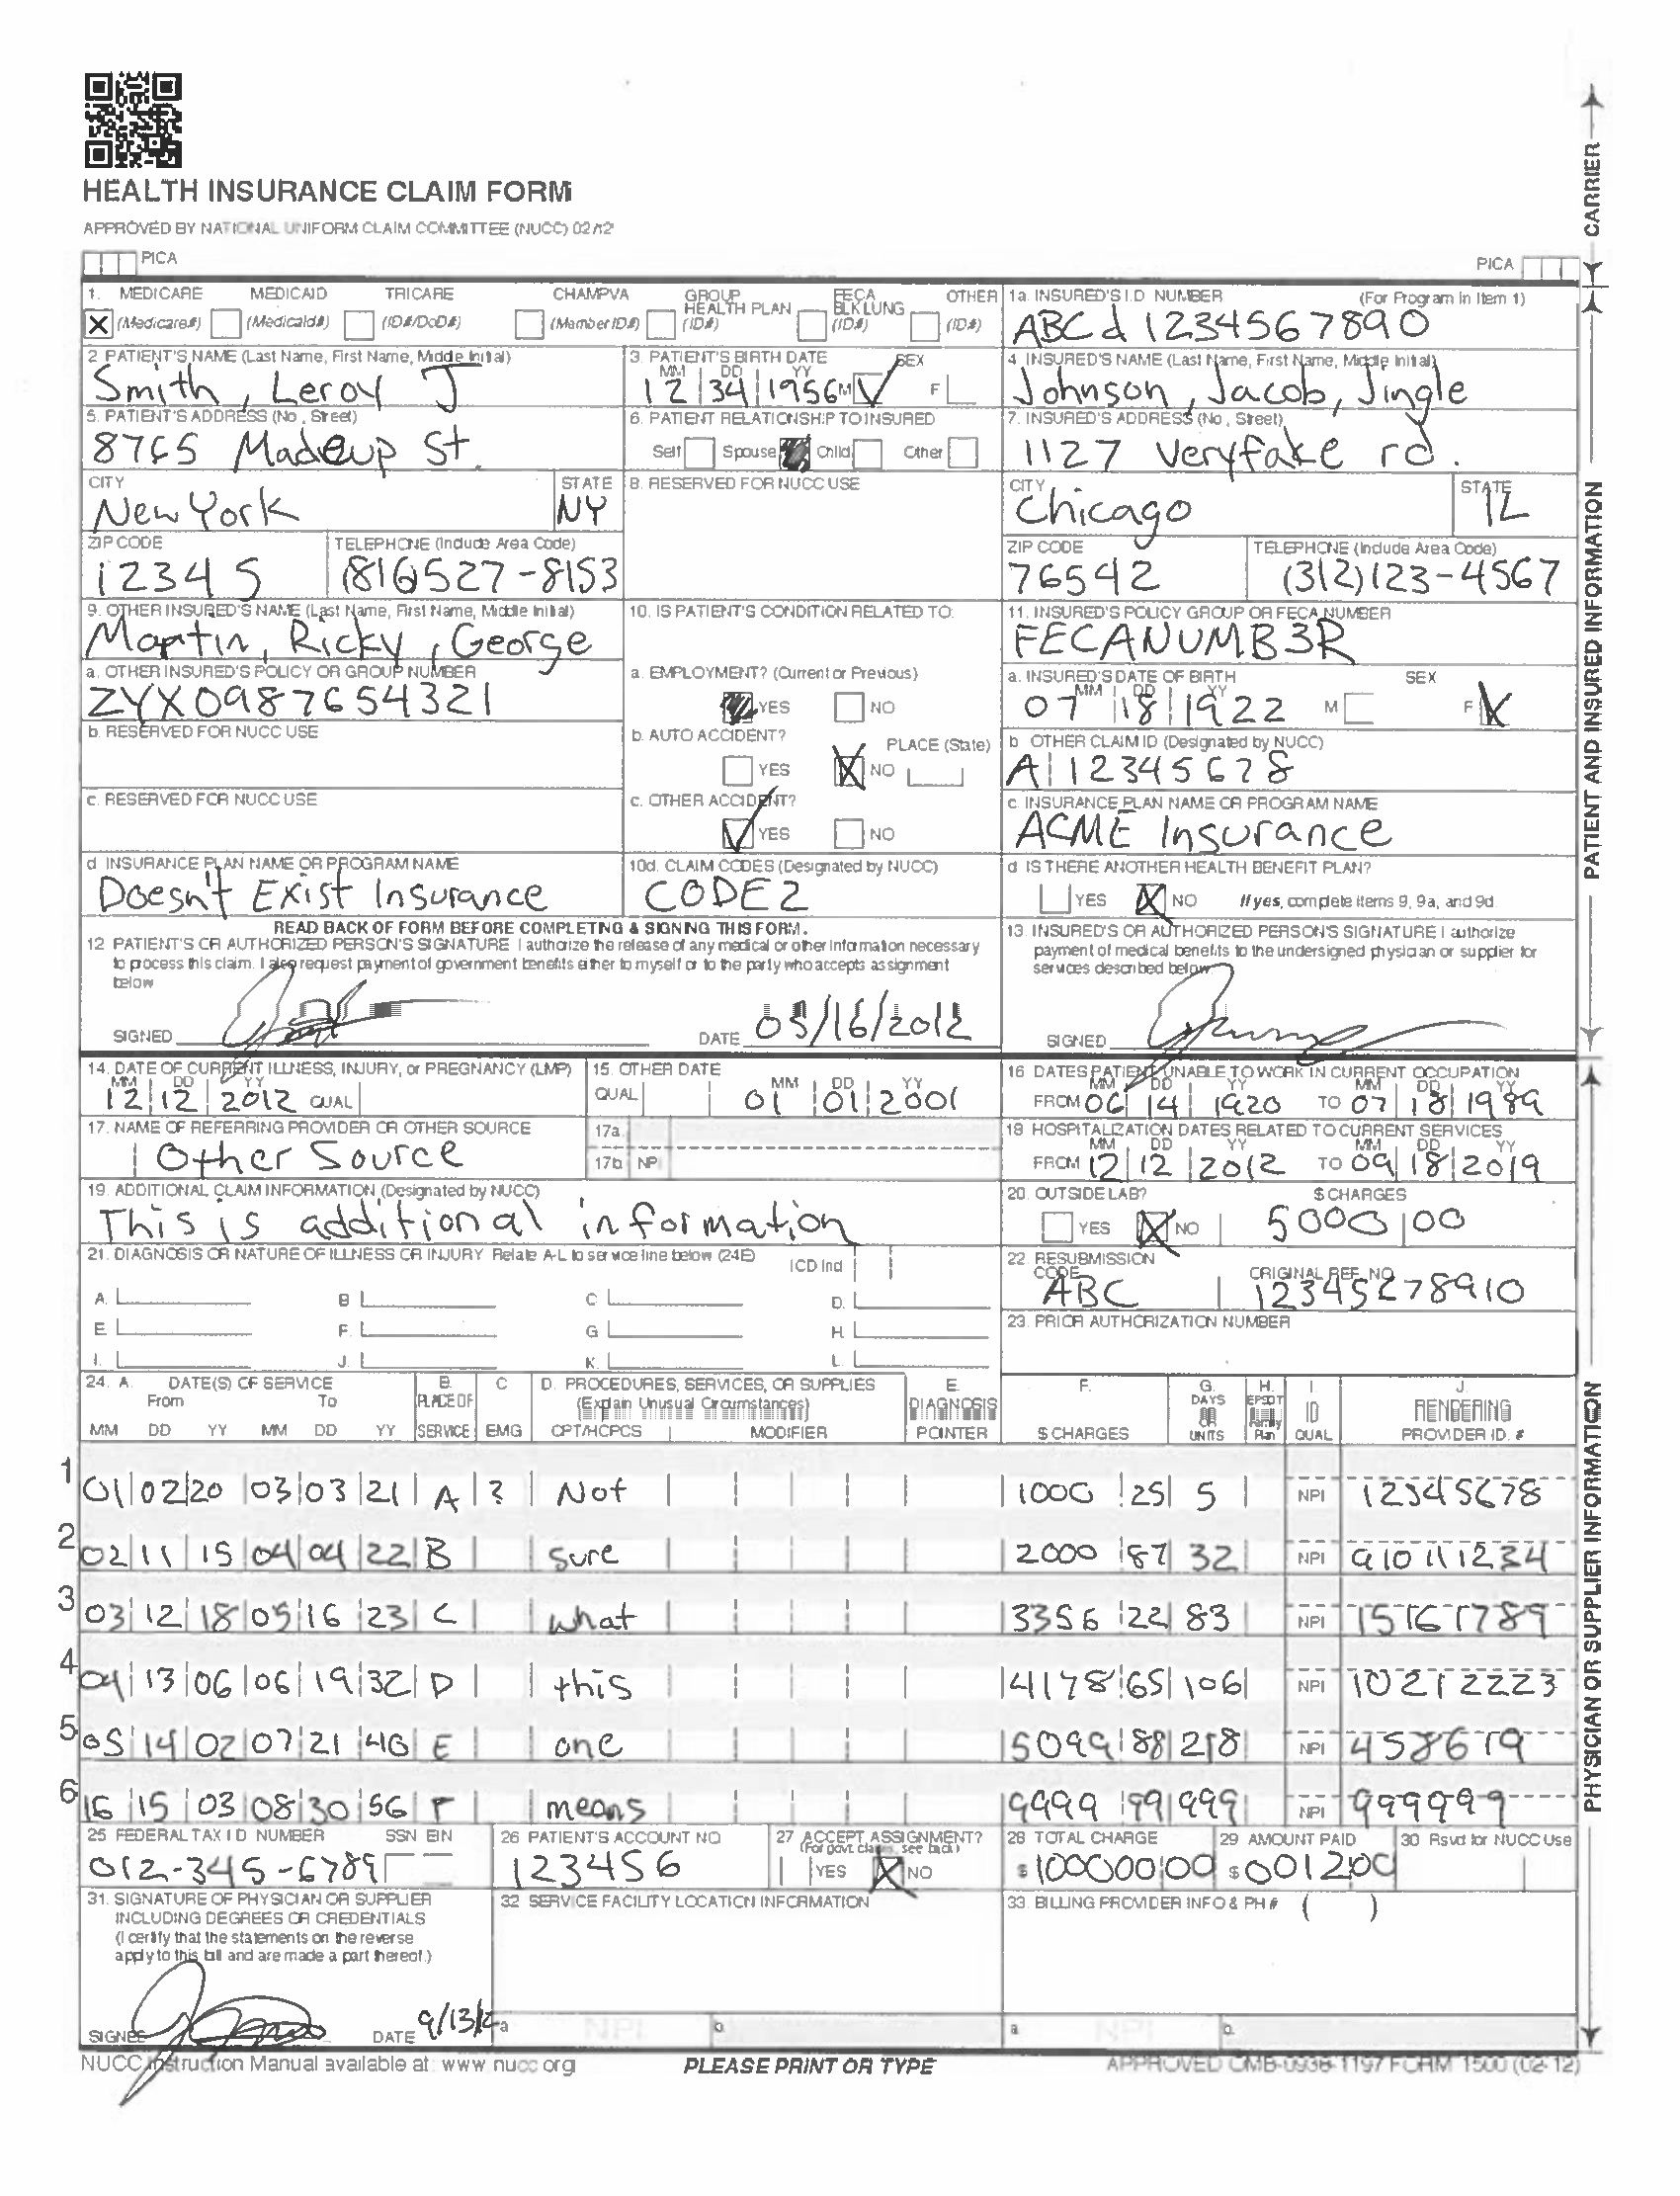 HEALTH INSURANCE CLAIM FORM
APPROVED BY NATIONAL UNIFORM CLAIM COMMITTEE (NUCC) 02/12
PICA PICA
CARRIER
1. MEDICARE MEDICAID TRICARE CHAMPVA GROUP HEALTH PLAN FECA BLK LUNG OTHER
(Medicare#) (Medicaid#) (ID#/DoD#) (Member ID#) (ID#) (ID#) (ID#)
1a. INSURED'S I.D NUMBER (For Program in Item 1)
ABCd 1234567890
2 PATIENT'S NAME (Last Name, First Name, Middle Initial)
Smith, Leroy J
3. PATIENT'S BIRTH DATE SEX
MM DD YY
12 34 1956 M F
4. INSURED'S NAME (Last Name, First Name, Middle Initial)
Johnson, Jacob, Jingle
5. PATIENT'S ADDRESS (No., Street)
8765 Madeup St.
6. PATIENT RELATIONSHIP TO INSURED
Self Spouse Child Other
7. INSURED'S ADDRESS (No., Street)
1127 Veryfake rd.
CITY STATE
New York NY
8. RESERVED FOR NUCC USE
CITY STATE
Chicago IL
ZIP CODE TELEPHONE (Include Area Code)
12345 (816)527-8153
ZIP CODE TELEPHONE (Include Area Code)
76542 (312)123-4567
9. OTHER INSURED'S NAME (Last Name, First Name, Middle Initial)
Martin, Ricky, George
10. IS PATIENT'S CONDITION RELATED TO:
11. INSURED'S POLICY GROUP OR FECA NUMBER
FECANUMB3R
a. OTHER INSURED'S POLICY OR GROUP NUMBER
ZYX0987654321
a. EMPLOYMENT? (Current or Previous)
YES NO
a. INSURED'S DATE OF BIRTH SEX
MM DD YY
07 18 1922 M F
b. RESERVED FOR NUCC USE
b. AUTO ACCIDENT? PLACE (State)
YES NO
b OTHER CLAIM ID (Designated by NUCC)
A 12345678
c. RESERVED FOR NUCC USE
c. OTHER ACCIDENT?
YES NO
c. INSURANCE PLAN NAME OR PROGRAM NAME
ACME Insurance
d INSURANCE PLAN NAME OR PROGRAM NAME
Doesn't Exist Insurance
10d. CLAIM CODES (Designated by NUCC)
CODE2
d IS THERE ANOTHER HEALTH BENEFIT PLAN?
YES NO If yes, complete items 9, 9a, and 9d.
PATIENT AND INSURED INFORMATION
READ BACK OF FORM BEFORE COMPLETING & SIGNING THIS FORM.
12 PATIENT'S OR AUTHORIZED PERSON'S SIGNATURE I authorize the release of any medical or other information necessary
to process this claim. I also request payment of government benefits either to myself or to the party who accepts assignment
below
SIGNED DATE 05/16/2012
13. INSURED'S OR AUTHORIZED PERSON'S SIGNATURE I authorize
payment of medical benefits to the undersigned physician or supplier for
services described below
SIGNED
14. DATE OF CURRENT ILLNESS, INJURY, or PREGNANCY (LMP)
MM DD YY
12 12 2012 QUAL
15. OTHER DATE
QUAL MM DD YY
01 01 2001
16 DATES PATIENT UNABLE TO WORK IN CURRENT OCCUPATION
MM DD YY MM DD YY
FROM 06 14 1920 TO 07 18 1989
17. NAME OF REFERRING PROVIDER OR OTHER SOURCE
Other Source
17a
17b NPI
18 HOSPITALIZATION DATES RELATED TO CURRENT SERVICES
MM DD YY MM DD YY
FROM 12 12 2012 TO 09 18 2019
19. ADDITIONAL CLAIM INFORMATION (Designated by NUCC)
This is additional information
20. OUTSIDE LAB? $ CHARGES
YES NO 5000 00
21. DIAGNOSIS OR NATURE OF ILLNESS OR INJURY Relate A-L to service line below (24E) ICD Ind
A. B C D.
E. F. G H.
I. J. K. L.
22. RESUBMISSION CODE ORIGINAL REF. NO.
ABC 12345678910
23. PRIOR AUTHORIZATION NUMBER
24. A. DATE(S) OF SERVICE B. C D. PROCEDURES, SERVICES, OR SUPPLIES E. F. G. H. I. J.
From To PLACE OF (Explain Unusual Circumstances) DIAGNOSIS DAYS OR EPSDT Family ID RENDERING
MM DD YY MM DD YY SERVICE EMG CPT/HCPCS MODIFIER POINTER $ CHARGES UNITS Plan QUAL PROVIDER ID. #
1 01 02 20 03 03 21 A ? Not 1000 25 5 NPI 12345678
2 02 11 15 04 04 22 B sure 2000 87 32 NPI 910111234
3 03 12 18 05 16 23 C what 3356 22 83 NPI 15161789
4 04 13 06 06 19 32 D this 4178 65 106 NPI 10212223
5 05 14 02 07 21 40 E one 5099 88 218 NPI 4586719
6 16 15 03 08 30 56 F means 9999 99 999 NPI 999999
25 FEDERAL TAX I D NUMBER SSN EIN
012-345-6789
26 PATIENT'S ACCOUNT NO
123456
27 ACCEPT ASSIGNMENT?
(For govt. claims, see back)
YES NO
28 TOTAL CHARGE
$ 100000 00
29 AMOUNT PAID
$ 001200
30 Rsvd for NUCC Use
31. SIGNATURE OF PHYSICIAN OR SUPPLIER
INCLUDING DEGREES OR CREDENTIALS
(I certify that the statements on the reverse
apply to this bill and are made a part thereof.)
SIGNED DATE 9/13/12
32 SERVICE FACILITY LOCATION INFORMATION
a NPI b.
33. BILLING PROVIDER INFO & PH # ( )
a NPI b.
PHYSICIAN OR SUPPLIER INFORMATION
NUCC Instruction Manual available at: www.nucc.org PLEASE PRINT OR TYPE APPROVED OMB-0938-1197 FORM 1500 (02-12)